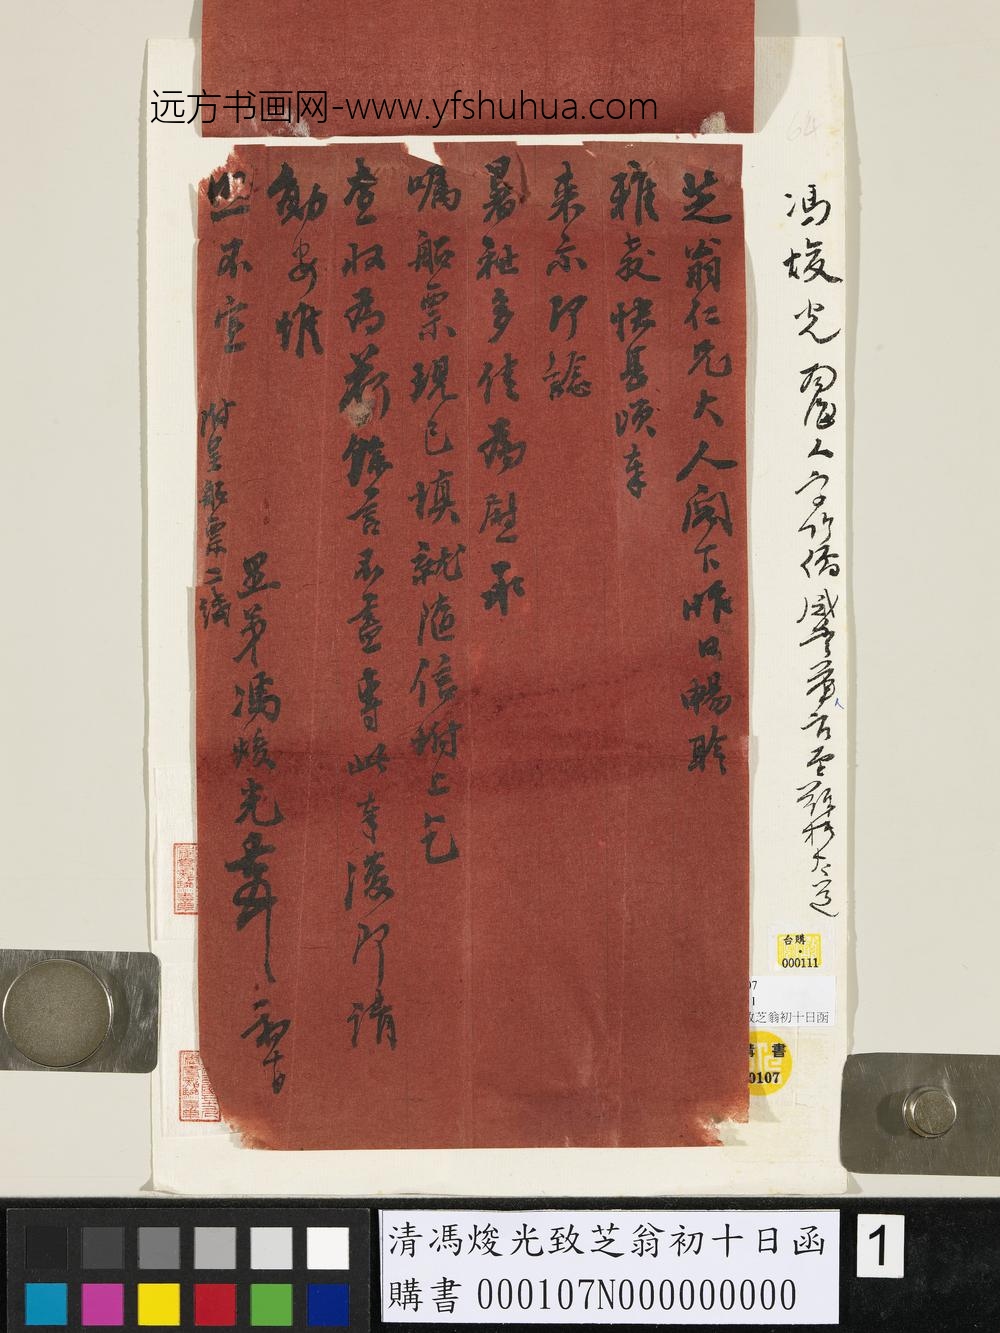 远方书画网-www.yfshuhua.com
芝翁仁兄大人閣下昨日暢聆
雅教快甚頃奉
來示即諗
暑祉多佳為慰承
囑船票現已填就隨信附上乞
查收為荷餘言不盡專此奉復即請
勛安惟
照不宣
愚弟馮焌光 初十日
附呈船票二張
馮焌光 南海人字竹儒咸豐舉人官至蘇松太道
64
台購
000111
07
1
致芝翁初十日函
購書
0107
清馮焌光致芝翁初十日函
購書000107N000000000
1